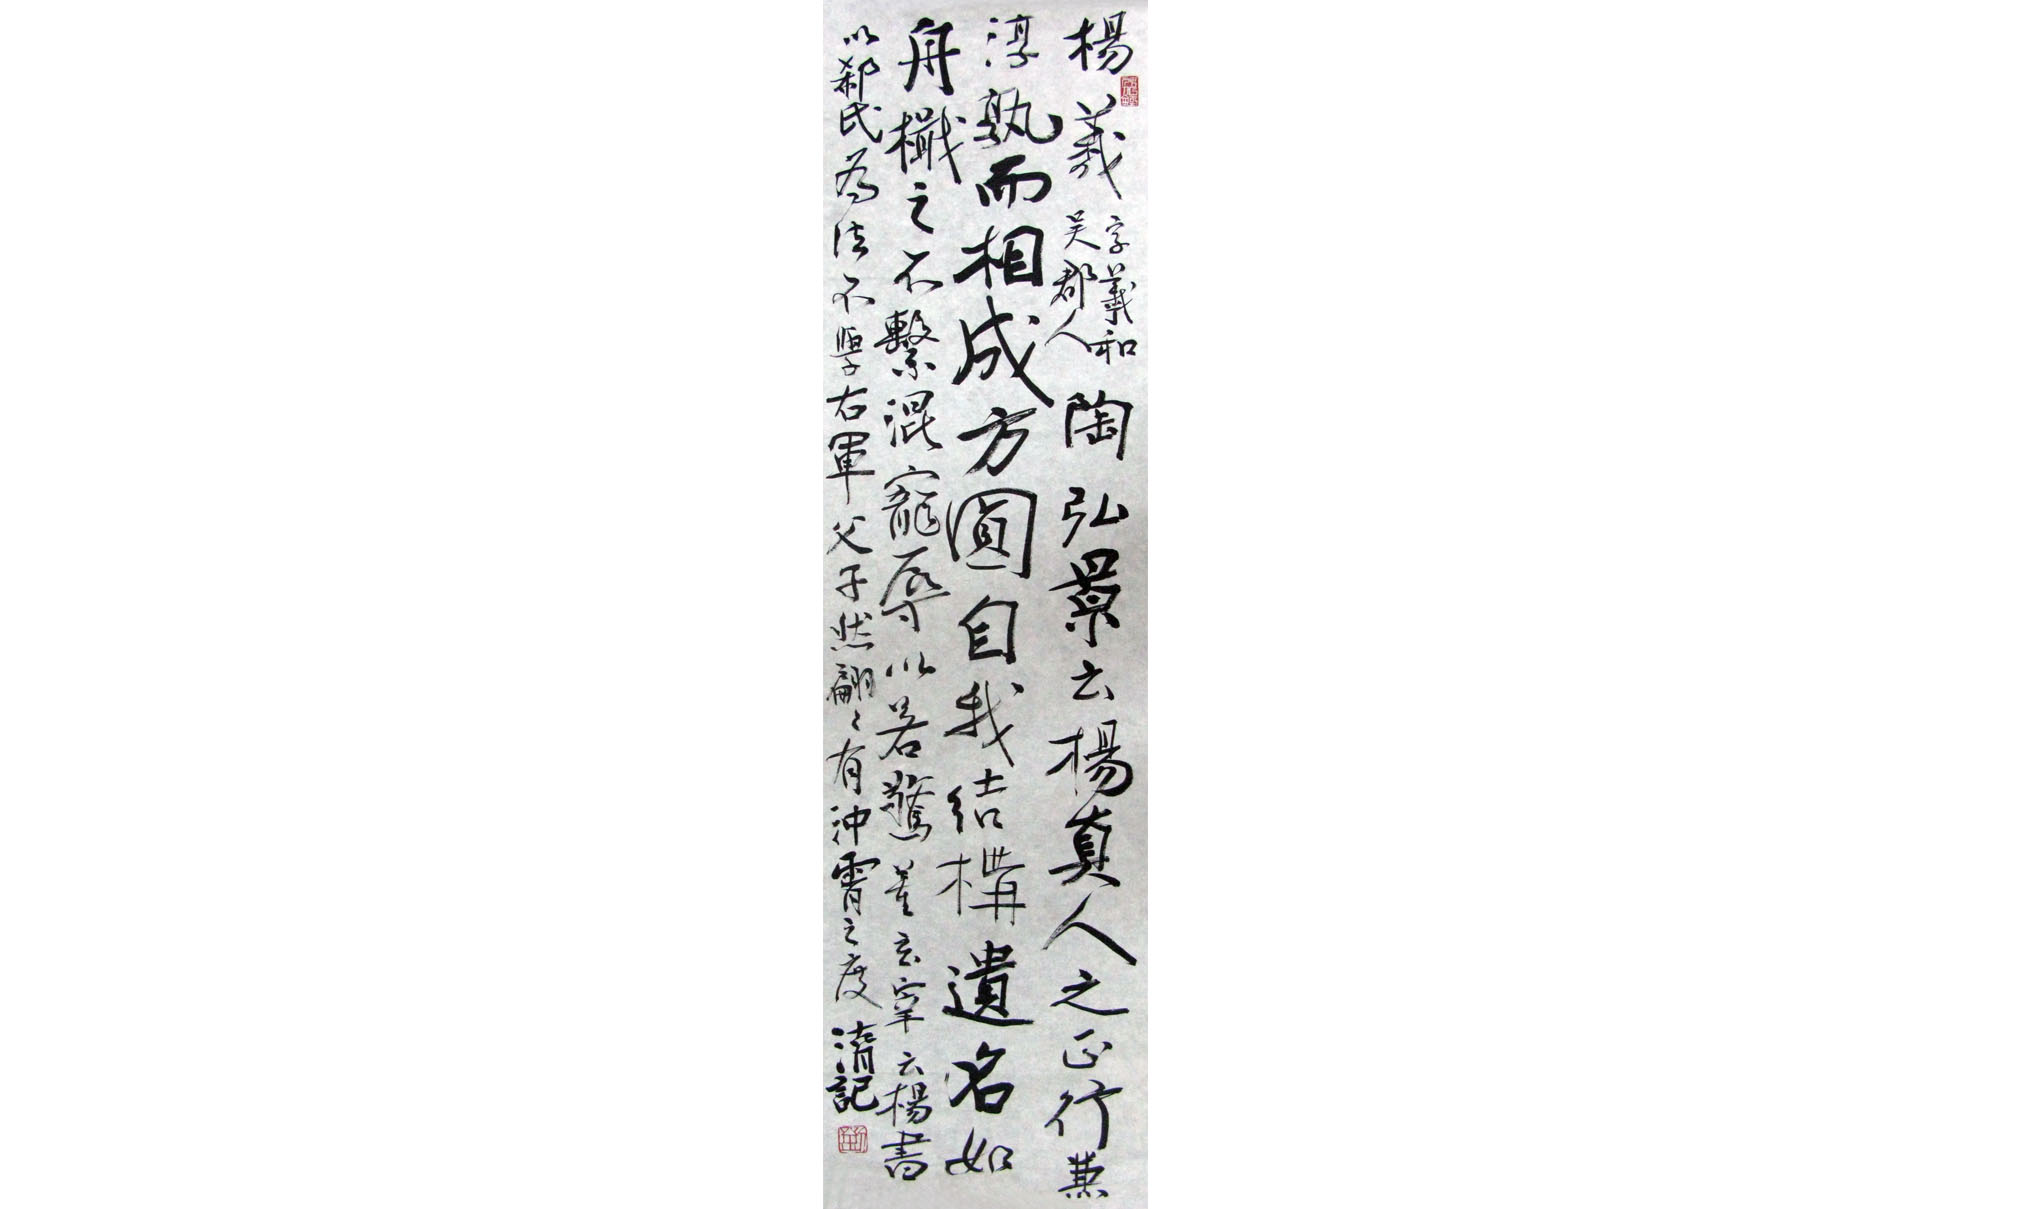 楊羲字羲和吳郡人陶弘景云楊真人之正行兼
淳熟而相成方圓自我結構遺名如
舟檝之不繫混寵辱以若驚董玄宰云楊書
以郗氏為法不學右軍父子然翩〻有沖霄之度清記